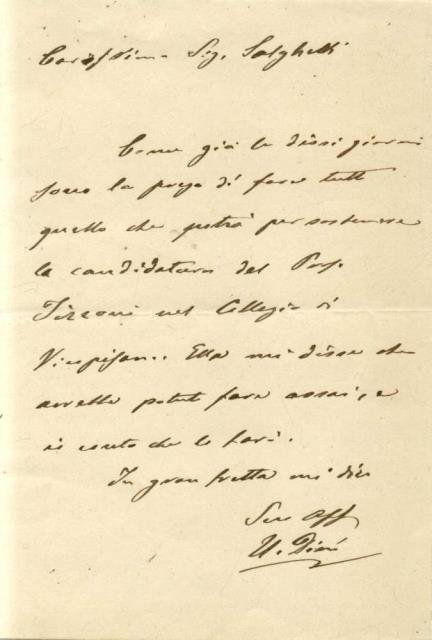 Carissimo Sig. Salghetti
Come già le dissi giorni
sono la prego di fare tutt
quello che potrà per sostenere
la candidatura del Prof.
Tizzoni nel Collegio di
Vicopisano. Ella mi disse che
avrebbe potuto fare assai, e
io conto che lo farà.
In gran fretta mi dico
Suo Aff
U. Dini